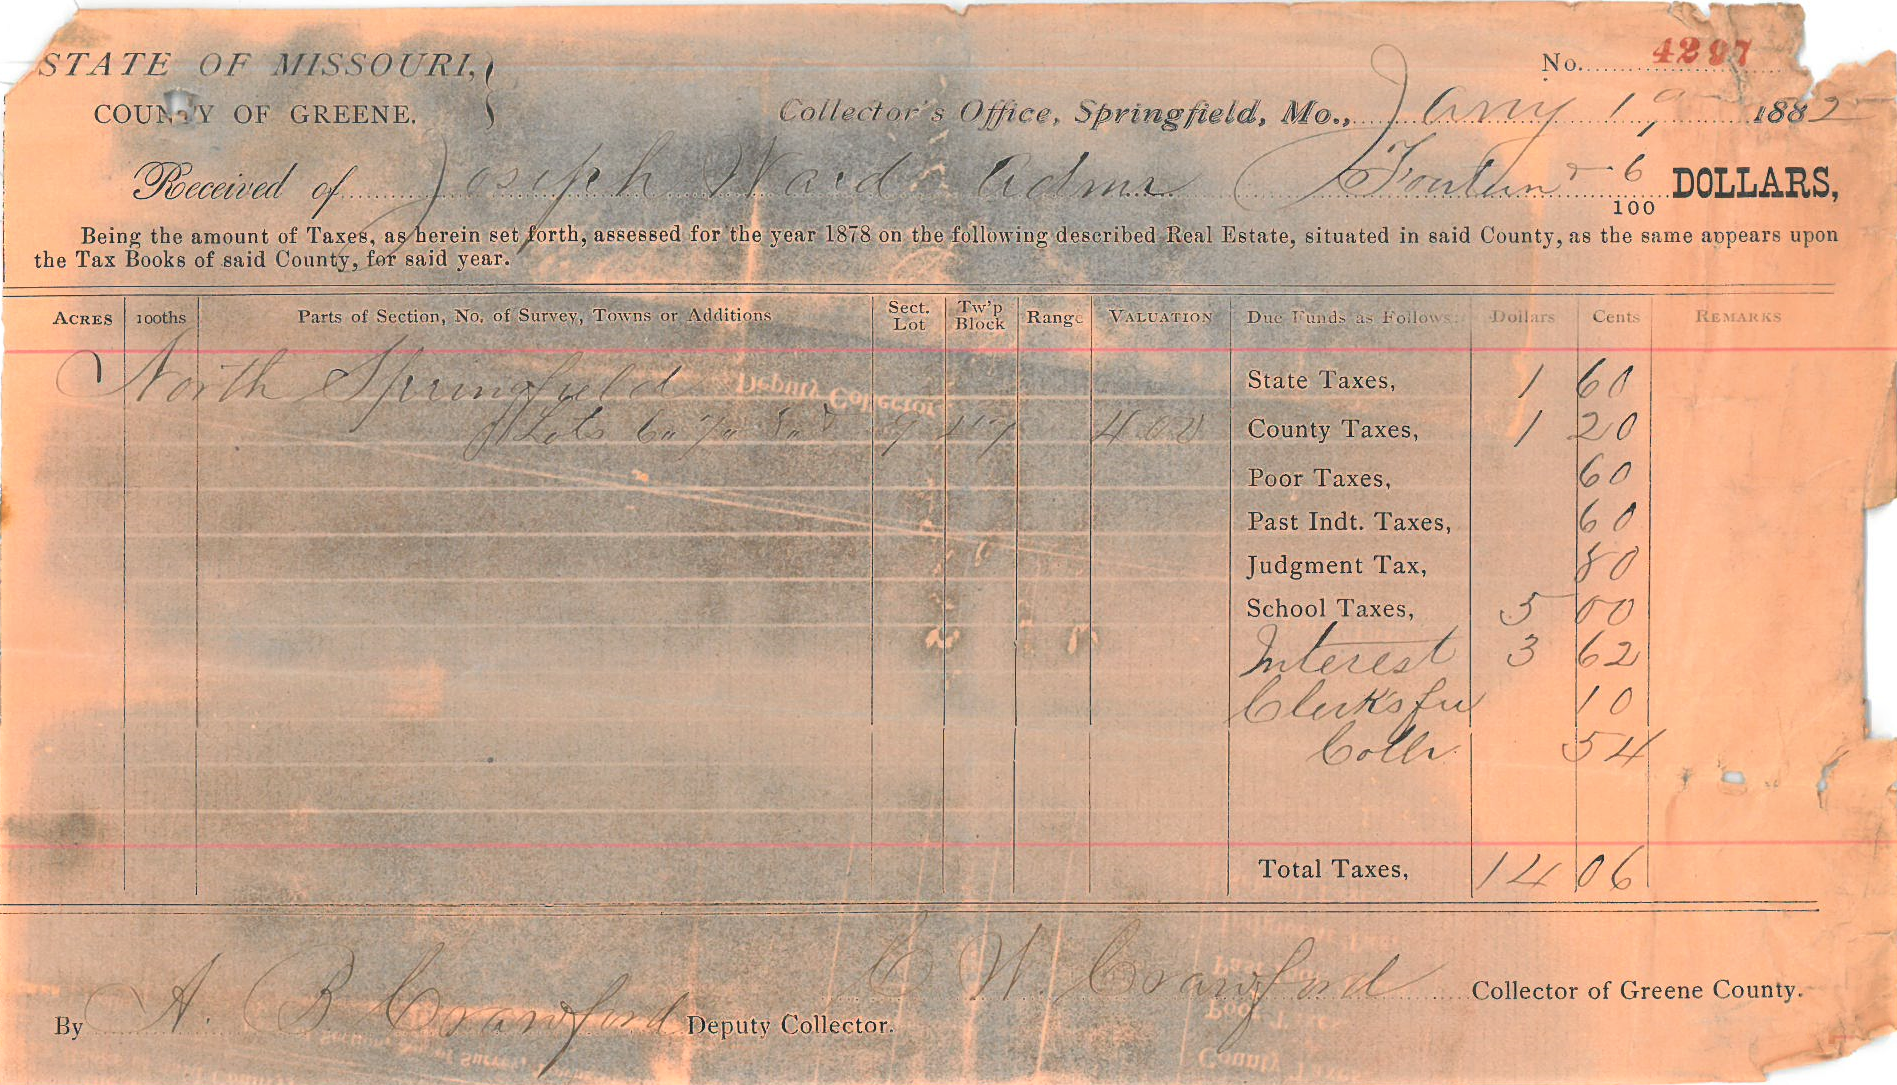 STATE OF MISSOURI,
COUNTY OF GREENE.
No. 4297
Collector's Office, Springfield, Mo., Jany 1 1882
Received of Joseph Ward Admr 6/100 DOLLARS,
Being the amount of Taxes, as herein set forth, assessed for the year 1878 on the following described Real Estate, situated in said County, as the same appears upon
the Tax Books of said County, for said year.
ACRES 100ths Parts of Section, No. of Survey, Towns or Additions Sect. Lot Tw'p Block Range VALUATION Due Funds as Follows: Dollars Cents REMARKS
North Springfield State Taxes, 1 60
Lots 6 " 7 " 8 " 9 17 400 County Taxes, 1 20
Poor Taxes, 60
Past Indt. Taxes, 60
Judgment Tax, 80
School Taxes, 5 00
Interest 3 62
Clerk's fee 10
Collr. 54
Total Taxes, 14 06
C W. Crawford Collector of Greene County.
By A. B Crawford Deputy Collector.